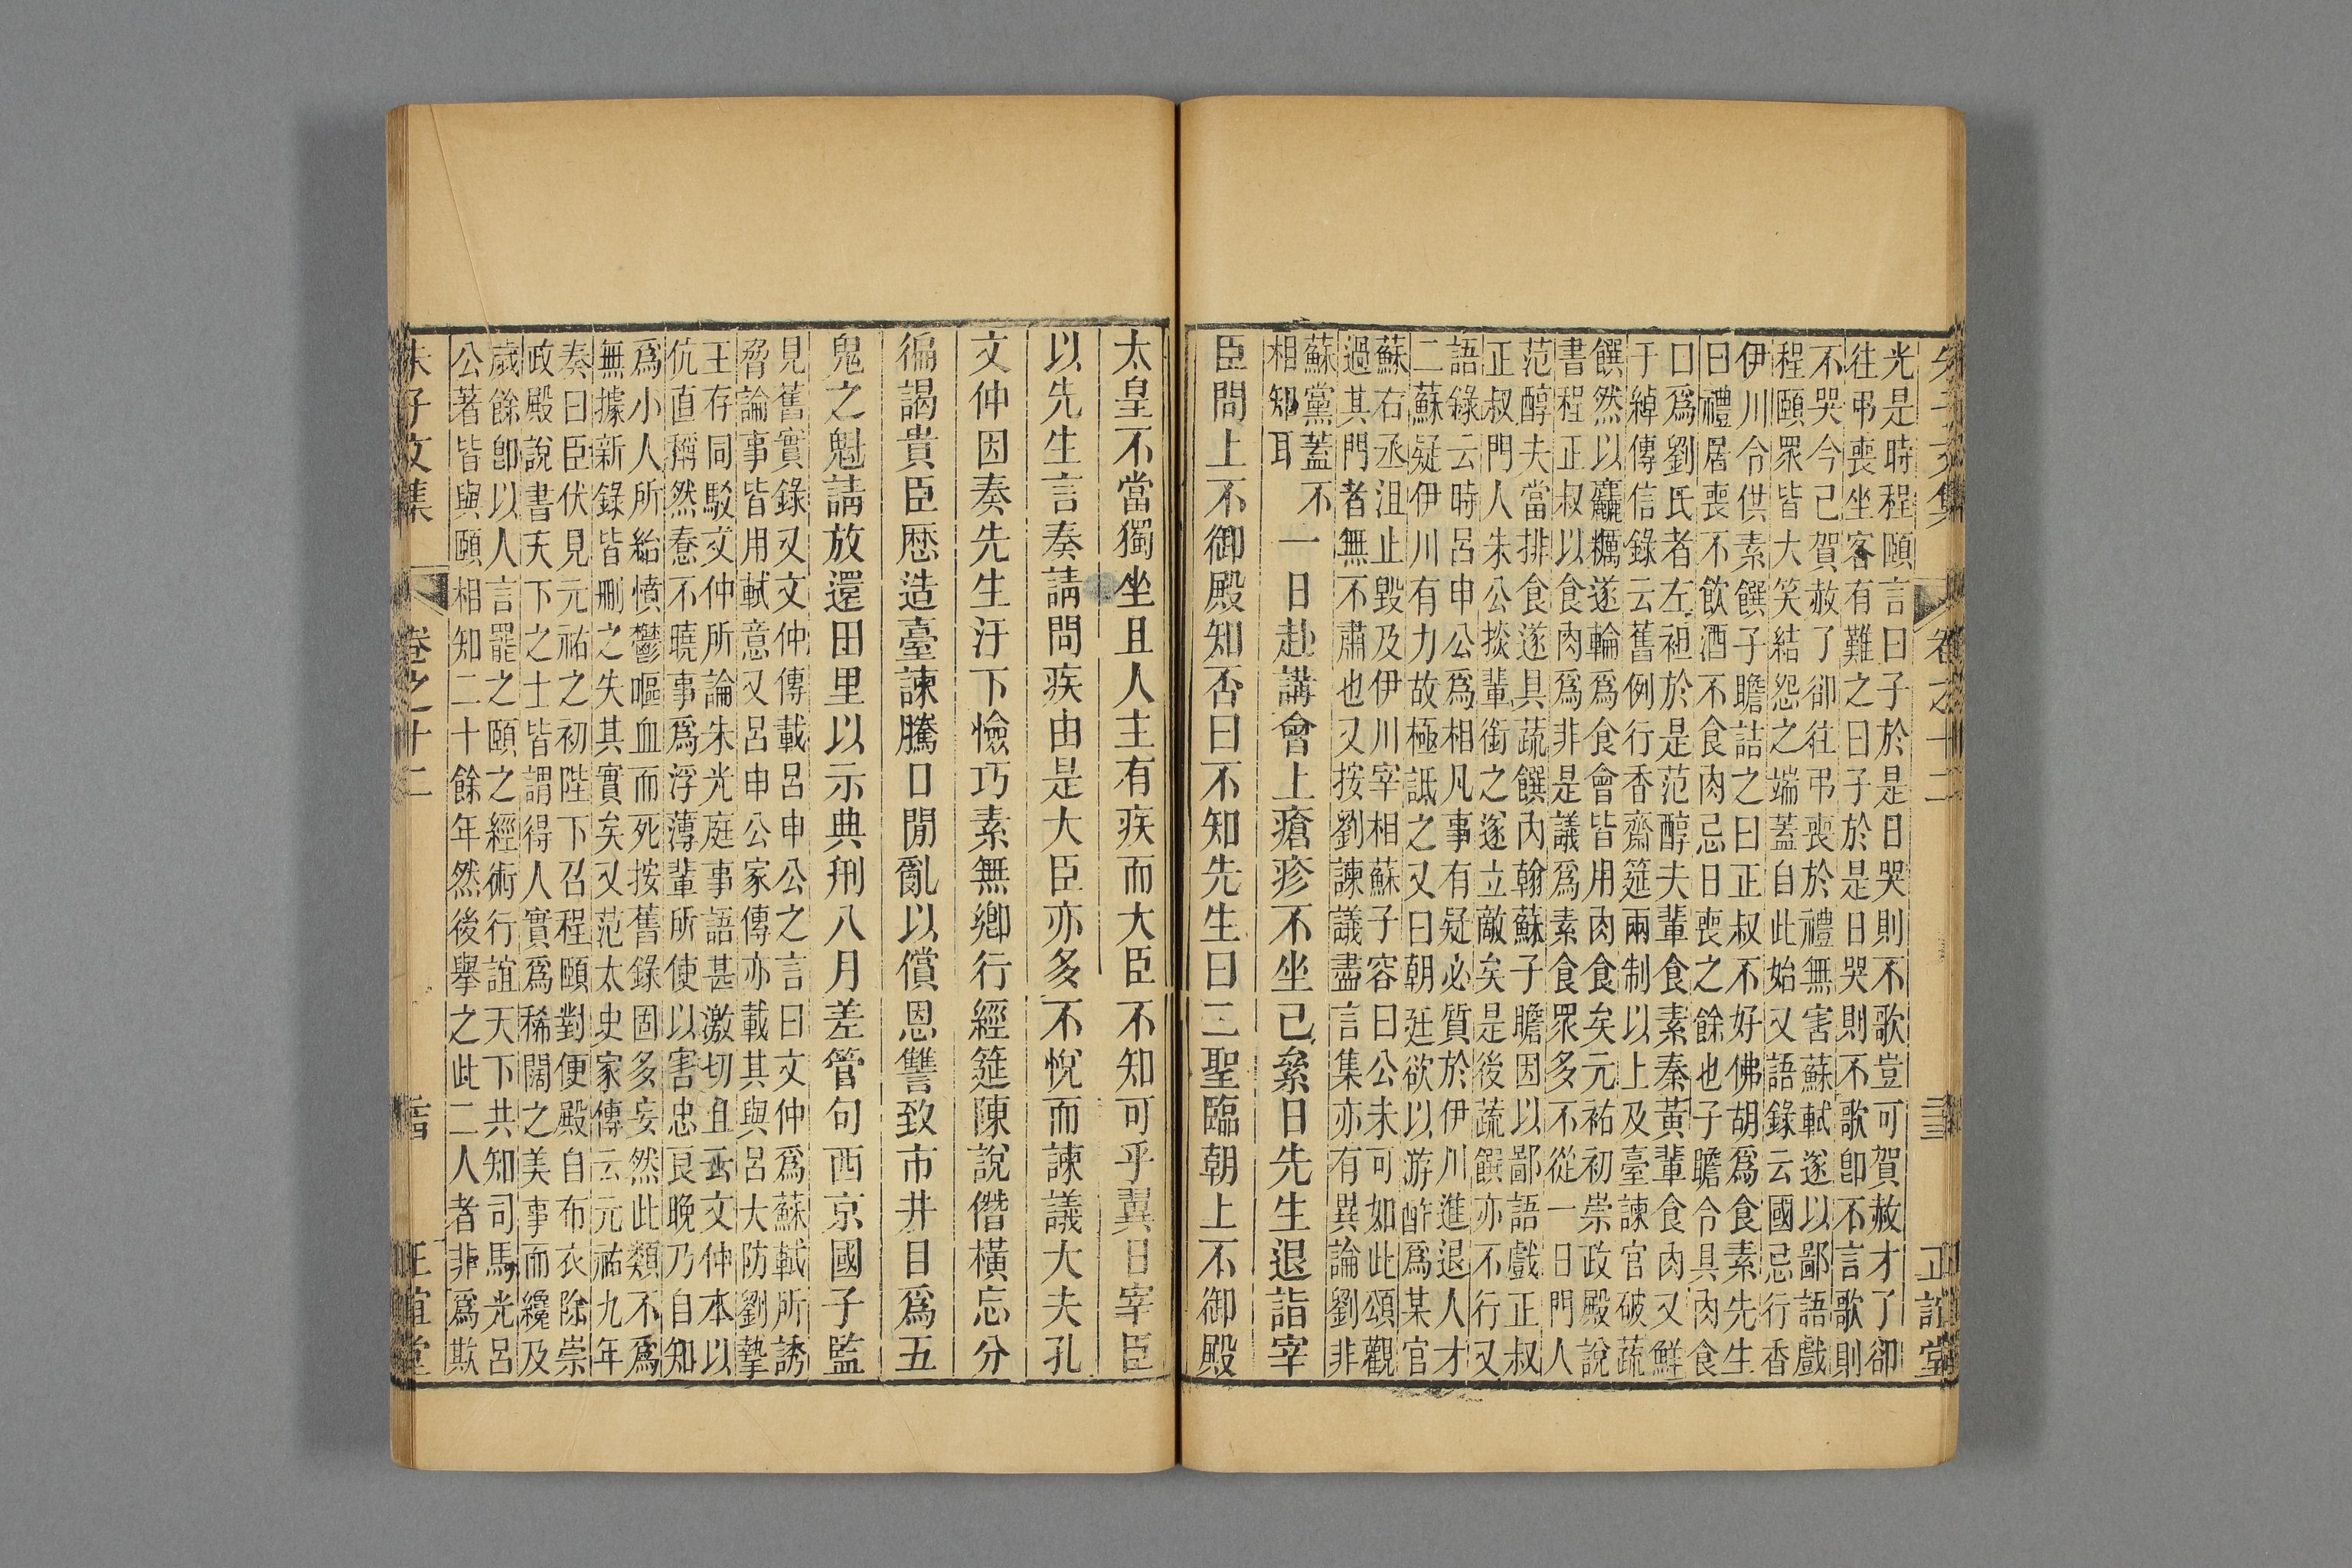 朱子文集 卷之十二 三 正誼堂
光是時程頤言曰子於是日哭則不歌豈可賀赦才了卻
往弔喪坐客有難之曰子於是日哭則不歌卽不言歌則
不哭今已賀赦了卻往弔喪於禮無害蘇軾遂以鄙語戲
程頤眾皆大笑結怨之端蓋自此始又語錄云國忌行香
伊川令供素饌子瞻詰之曰正叔不好佛胡爲食素先生
曰禮居喪不飲酒不食肉忌日喪之餘也子瞻令具肉食
曰爲劉氏者左袒於是范醇夫輩食素秦黃輩食肉又鮮
于綽傳信錄云舊例行香齋筵兩制以上及臺諫官破蔬
饌然以麤糲遂輪爲食會皆用肉食矣元祐初崇政殿說
書程正叔以食肉爲非是議爲素食眾多不從一日門人
范醇夫當排食遂具蔬饌內翰蘇子瞻因以鄙語戲正叔
正叔門人朱公掞輩銜之遂立敵矣是後蔬饌亦不行又
語錄云時呂申公爲相凡事有疑必質於伊川進退人才
二蘇疑伊川有力故極詆之又曰朝廷欲以游酢爲某官
蘇右丞沮止毀及伊川宰相蘇子容曰公未可如此頌觀
過其門者無不肅也又按劉諫議盡言集亦有異論劉非
蘇黨蓋不
相知耳
一日赴講會上瘡疹不坐已絫日先生退詣宰
臣問上不御殿知否曰不知先生曰二聖臨朝上不御殿
太皇不當獨坐且人主有疾而大臣不知可乎翼日宰臣
以先生言奏請問疾由是大臣亦多不悅而諫議大夫孔
文仲因奏先生汙下憸巧素無鄉行經筵陳說僭橫忘分
徧謁貴臣歷造臺諫騰口閒亂以償恩讐致市井目爲五
鬼之魁請放還田里以示典刑八月差管句西京國子監
見舊實錄又文仲傳載呂申公之言曰文仲爲蘇軾所誘
脅論事皆用軾意又呂申公家傳亦載其與呂大防劉摯
王存同駁文仲所論朱光庭事語甚激切且云文仲本以
伉直稱然憃不曉事爲浮薄輩所使以害忠良晚乃自知
爲小人所紿憤鬱嘔血而死按舊錄固多妄然此類不爲
無據新錄皆刪之失其實矣又范太史家傳云元祐九年
奏曰臣伏見元祐之初陛下召程頤對便殿自布衣除崇
政殿說書天下之士皆謂得人實爲稀闊之美事而纔及
歲餘卽以人言罷之頤之經術行誼天下共知司馬光呂
公著皆與頤相知二十餘年然後舉之此二人者非爲欺
朱子文集 卷之十二 正誼堂